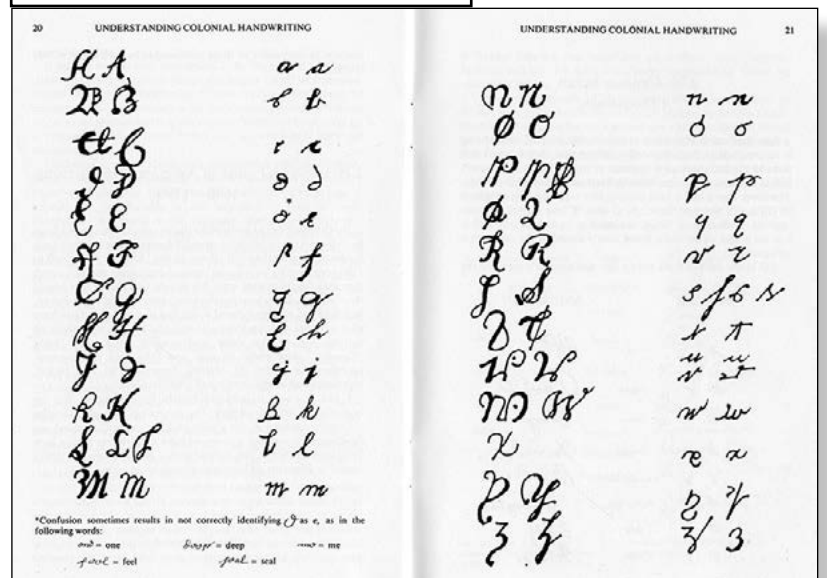 20 UNDERSTANDING COLONIAL HANDWRITING
A A a a
B B b b
C C c c
D D d d
E E e e
F F f f
G G g g
H H h h
J J j j
K K k k
L L L l l
M M m m
*Confusion sometimes results in not correctly identifying as e, as in the
following words:
= one = deep = me
= feel = seal
UNDERSTANDING COLONIAL HANDWRITING 21
N N n n
O O o o
P P P p p
Q Q q q
R R r r
S S s s s s
T T t t
U U u u
v v
W W w w
X x x
Y Y y y
Z Z z z